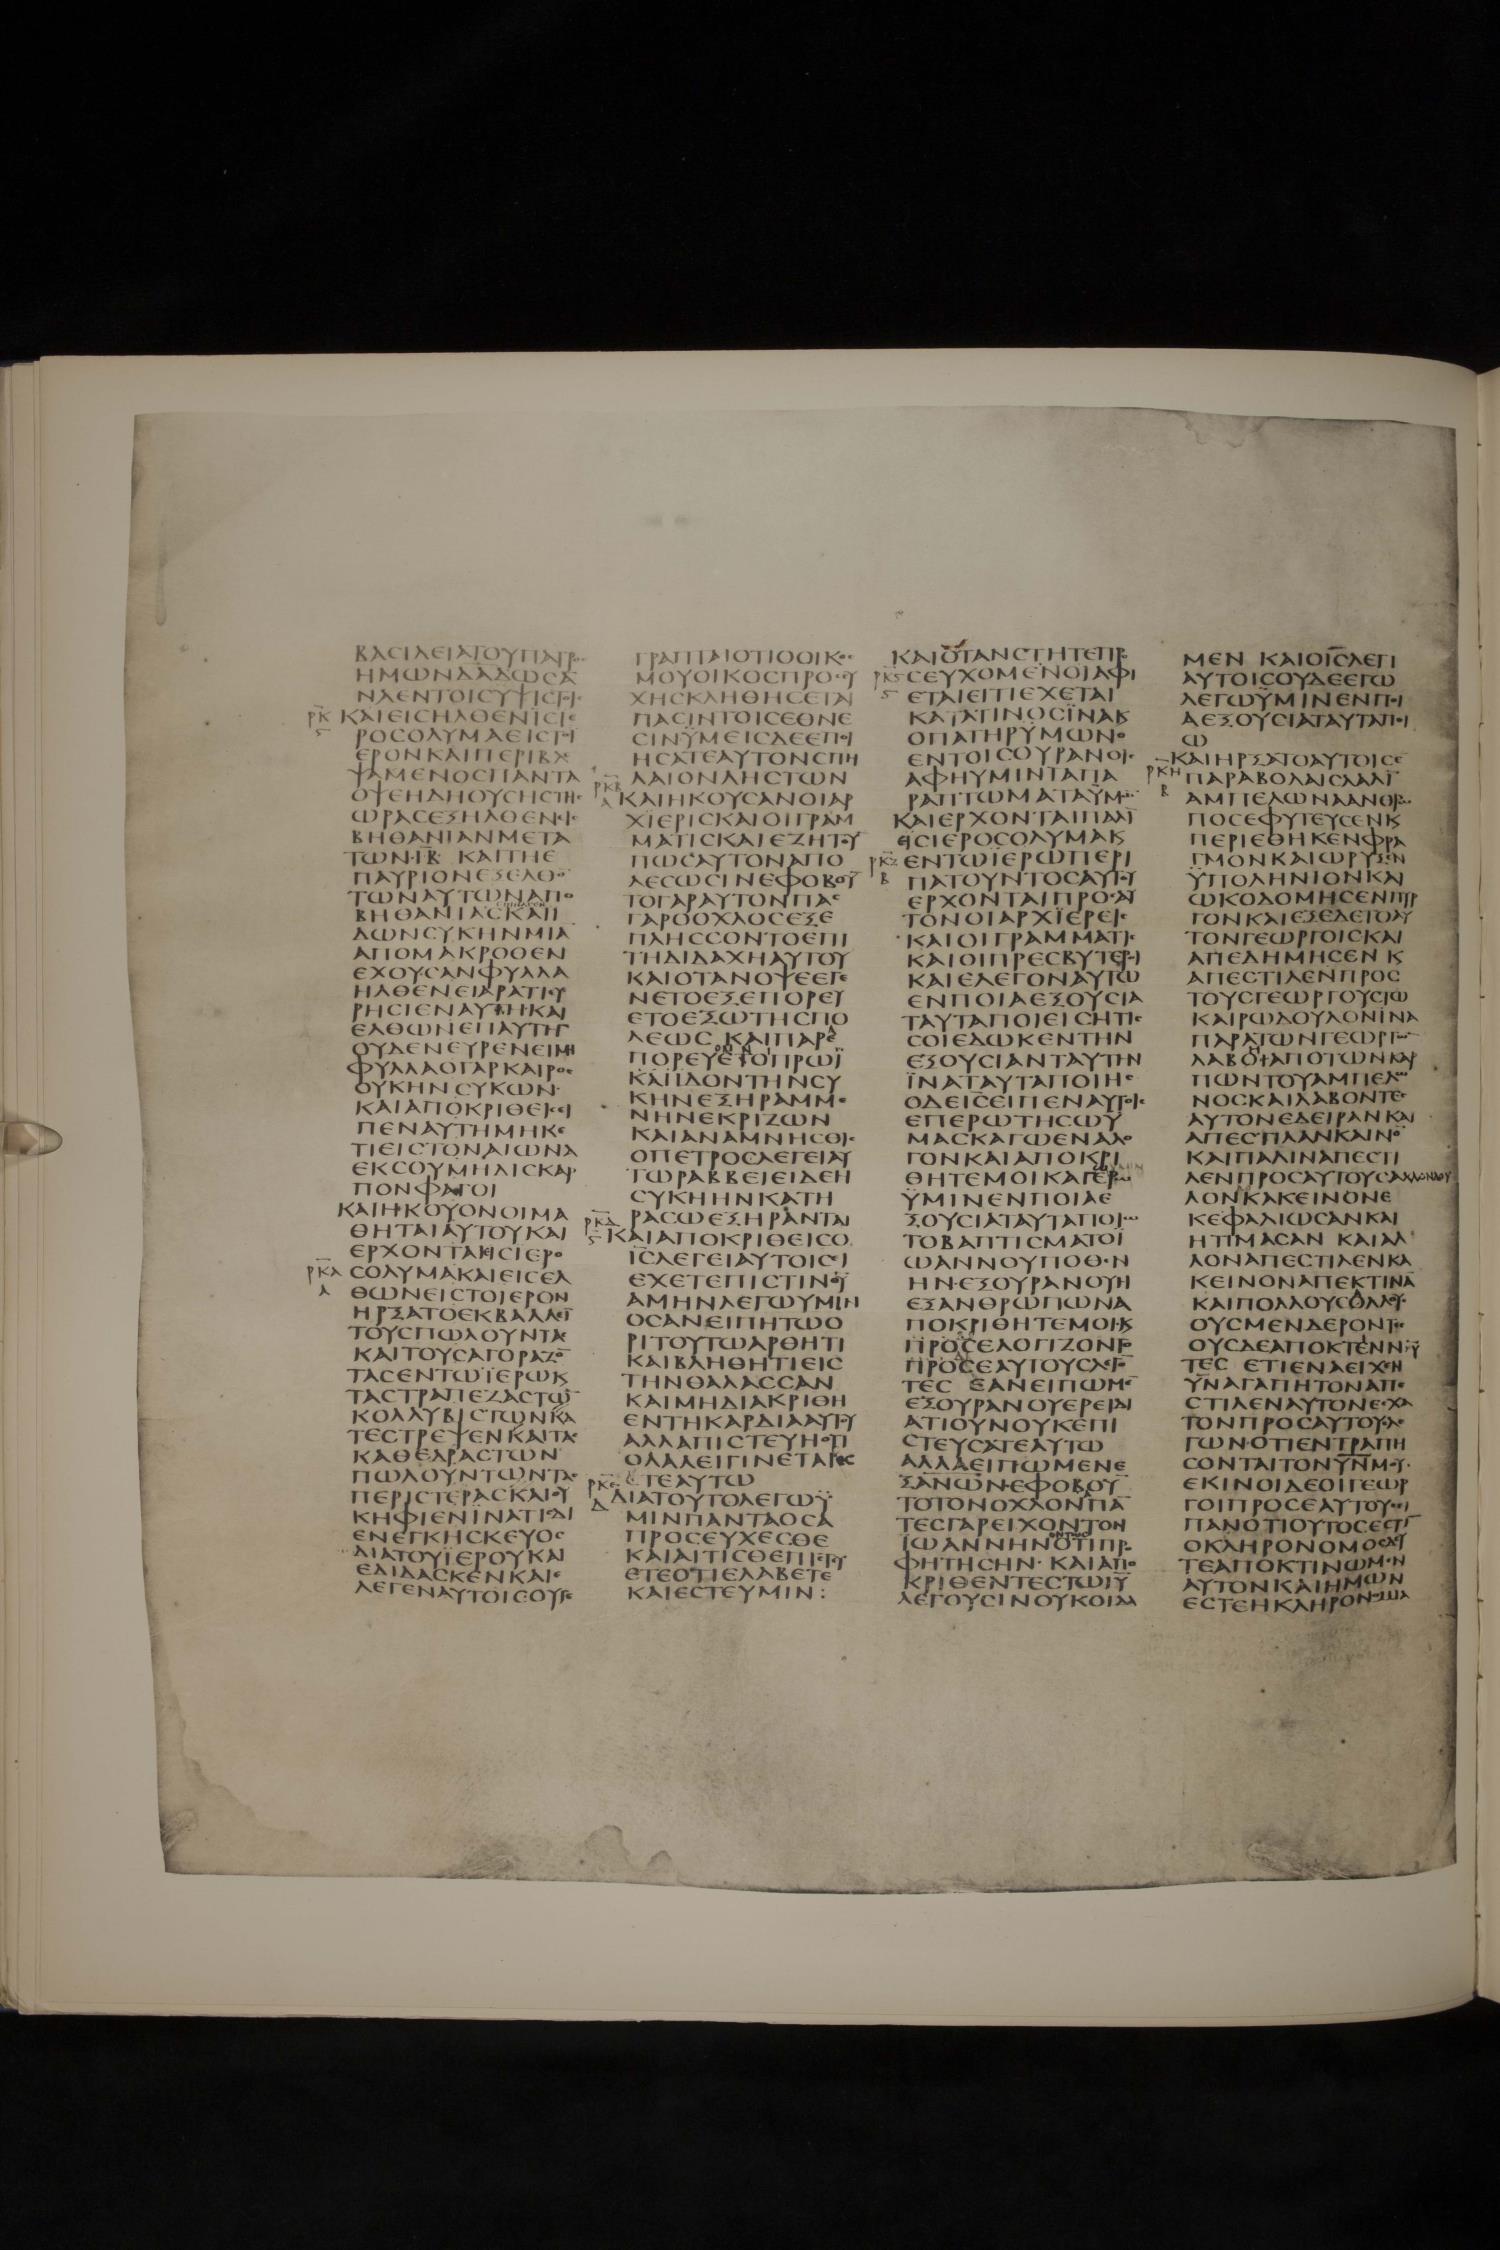 ΒΑCΙΛΕΙΑΤΟΥΠΑΤΡ
ΗΜΩΝΔΑΔΩCΑ
ΝΑΕΝΤΟΙCΥΨΙCΤΟΙ
ΡΚ ΚΑΙΕΙCΗΛΘΕΝΪCΙΕ
ΡΟCΟΛΥΜΑΕΙCΤΟΙ
ΕΡΟΝΚΑΙΠΕΡΙΒΛΕ
ΨΑΜΕΝΟCΠΑΝΤΑ
ΟΨΕΗΔΗΟΥCΗCΤΗC
ΩΡΑCΕΞΗΛΘΕΝΕΙC
ΒΗΘΑΝΙΑΝΜΕΤΑ
ΤΩΝΙΒ ΚΑΙΤΗΕ
ΠΑΥΡΙΟΝΕΞΕΛΘΟ
ΤΩΝΑΥΤΩΝΑΠΟ
ΒΗΘΑΝΙΑCΚΑΙΪ
ΔΩΝCΥΚΗΝΜΙΑ
ΑΠΟΜΑΚΡΟΘΕΝ
ΕΧΟΥCΑΝΦΥΛΛΑ
ΗΛΘΕΝΕΙΑΡΑΤΙΕΥ
ΡΗCΙΕΝΑΥΤΗΚΑΙ
ΕΛΘΩΝΕΠΑΥΤΗΝ
ΟΥΔΕΝΕΥΡΕΝΕΙΜΗ
ΦΥΛΛΑΟΓΑΡΚΑΙΡΟC
ΟΥΚΗΝCΥΚΩΝ
ΚΑΙΑΠΟΚΡΙΘΕΙCΕΙ
ΠΕΝΑΥΤΗΜΗΚΕ
ΤΙΕΙCΤΟΝΑΙΩΝΑ
ΕΚCΟΥΜΗΔΙCΚΑΡ
ΠΟΝΦΑΓΟΙ
ΚΑΙΗΚΟΥΟΝΟΙΜΑ
ΘΗΤΑΙΑΥΤΟΥΚΑΙ
ΕΡΧΟΝΤΑΙΕΙCΙΕΡΟ
ΡΚΑ CΟΛΥΜΑΚΑΙΕΙCΕΛ
Α ΘΩΝΕΙCΤΟΙΕΡΟΝ
ΗΡΞΑΤΟΕΚΒΑΛΛΕΙ
ΤΟΥCΠΩΛΟΥΝΤΑC
ΚΑΙΤΟΥCΑΓΟΡΑΖΟ
ΤΑCΕΝΤΩΪΕΡΩΚ
ΤΑCΤΡΑΠΕΖΑCΤΩ
ΚΟΛΛΥΒΙCΤΩΝΚΑ
ΤΕCΤΡΕΨΕΝΚΑΙΤΑC
ΚΑΘΕΔΡΑCΤΩΝ
ΠΩΛΟΥΝΤΩΝΤΑC
ΠΕΡΙCΤΕΡΑCΚΑΙΟΥ
ΚΗΦΙΕΝΪΝΑΤΙCΔΙ
ΕΝΕΓΚΗCΚΕΥΟC
ΔΙΑΤΟΥΪΕΡΟΥΚΑΙ
ΕΔΙΔΑCΚΕΝΚΑΙΕ
ΛΕΓΕΝΑΥΤΟΙCΟΥΓΕ
ΓΡΑΠΤΑΙΟΤΙΟΟΙΚΟC
ΜΟΥΟΙΚΟCΠΡΟCΕΥ
ΧΗCΚΛΗΘΗCΕΤΑΙ
ΠΑCΙΝΤΟΙCΕΘΝΕ
CΙΝΫΜΕΙCΔΕΕΠΟΙ
ΗCΑΤΕΑΥΤΟΝCΠΗ
ΡΚΒ ΛΑΙΟΝΛΗCΤΩΝ
Α ΚΑΙΗΚΟΥCΑΝΟΙΑΡ
ΧΙΕΡΙCΚΑΙΟΙΓΡΑΜ
ΜΑΤΙCΚΑΙΕΖΗΤΟΥ
ΠΩCΑΥΤΟΝΑΠΟ
ΛΕCΩCΙΝΕΦΟΒΟΥ
ΤΟΓΑΡΑΥΤΟΝΠΑC
ΓΑΡΟΟΧΛΟCΕΞΕ
ΠΛΗCCΟΝΤΟΕΠΙ
ΤΗΔΙΔΑΧΗΑΥΤΟΥ
ΚΑΙΟΤΑΝΟΨΕΕΓΕ
ΝΕΤΟΕΞΕΠΟΡΕΥ
ΕΤΟΕΞΩΤΗCΠΟ
ΛΕΩC ΚΑΙΠΑΡΕ
ΠΟΡΕΥΕΤΟΠΡΩΪ
ΚΑΙΪΔΟΝΤΗΝCΥ
ΚΗΝΕΞΗΡΑΜΜΕ
ΝΗΝΕΚΡΙΖΩΝ
ΚΑΙΑΝΑΜΝΗCΘΙC
ΟΠΕΤΡΟCΛΕΓΕΙΑΥ
ΤΩΡΑΒΒΕΙΕΙΔΕΗ
CΥΚΗΗΝΚΑΤΗ
ΡΚΔ ΡΑCΩΕΞΗΡΑΝΤΑΙ
ΚΑΙΑΠΟΚΡΙΘΕΙCΟ
ΙCΛΕΓΕΙΑΥΤΟΙCΕΙ
ΕΧΕΤΕΠΙCΤΙΝΘΥ
ΑΜΗΝΛΕΓΩΥΜΙΝ
ΟCΑΝΕΙΠΗΤΩΟ
ΡΙΤΟΥΤΩΑΡΘΗΤΙ
ΚΑΙΒΛΗΘΗΤΙΕΙC
ΤΗΝΘΑΛΑCCΑΝ
ΚΑΙΜΗΔΙΑΚΡΙΘΗ
ΕΝΤΗΚΑΡΔΙΑΑΥΤΟΥ
ΑΛΛΑΠΙCΤΕΥΗΟΤΙ
ΟΛΑΛΕΙΓΙΝΕΤΑΙΕC
ΡΚΕ ΤΕΑΥΤΩ
Δ ΔΙΑΤΟΥΤΟΛΕΓΩΫ
ΜΙΝΠΑΝΤΑΟCΑ
ΠΡΟCΕΥΧΕCΘΕ
ΚΑΙΑΙΤΙCΘΕΠΙCΤΕΥ
ΕΤΕΟΤΙΕΛΑΒΕΤΕ
ΚΑΙΕCΤΕΥΜΙΝ:
ΚΑΙΟΤΑΝCΤΗΤΕΠΡ
ΡΚS CΕΥΧΟΜΕΝΟΙΑΦΙ
ΕΤΑΙΕΙΤΙΕΧΕΤΑΙ
ΚΑΤΑΤΙΝΟCΪΝΑΚ
ΟΠΑΤΗΡΫΜΩΝΟ
ΕΝΤΟΙCΟΥΡΑΝΟΙC
ΑΦΗΥΜΙΝΤΑΠΑ
ΡΑΠΤΩΜΑΤΑΫΜ
ΚΑΙΕΡΧΟΝΤΑΙΠΑΛΙ
ΕΙCΙΕΡΟCΟΛΥΜΑΚ
ΡΚΖ ΕΝΤΩΪΕΡΩΠΕΡΙ
Β ΠΑΤΟΥΝΤΟCΑΥΤΟΥ
ΕΡΧΟΝΤΑΙΠΡΟCΑΥ
ΤΟΝΟΙΑΡΧΪΕΡΕΙC
ΚΑΙΟΙΓΡΑΜΜΑΤΙC
ΚΑΙΟΙΠΡΕCΒΥΤΕΡΟΙ
ΚΑΙΕΛΕΓΟΝΑΥΤΩ
ΕΝΠΟΙΑΕΞΟΥCΙΑ
ΤΑΥΤΑΠΟΙΕΙCΗΤΙC
CΟΙΕΔΩΚΕΝΤΗΝ
ΕΞΟΥCΙΑΝΤΑΥΤΗΝ
ΪΝΑΤΑΥΤΑΠΟΙΗC
ΟΔΕΙCΕΙΠΕΝΑΥΤΟΙC
ΕΠΕΡΩΤΗCΩΥ
ΜΑCΚΑΓΩΕΝΑΛΟ
ΓΟΝΚΑΙΑΠΟΚΡΙ
ΘΗΤΕΜΟΙΚΑΓΕΡΩ
ΫΜΙΝΕΝΠΟΙΑΕ
ΞΟΥCΙΑΤΑΥΤΑΠΟΙΩ
ΤΟΒΑΠΤΙCΜΑΤΟΪ
ΩΑΝΝΟΥΠΟΘΕΝ
ΗΝΕΞΟΥΡΑΝΟΥΗ
ΕΞΑΝΘΡΩΠΩΝΑ
ΠΟΚΡΙΘΗΤΕΜΟΙΚ
ΠΡΟCΕΛΟΓΙΖΟΝΤΟ
ΠΡΟCΕΑΥΤΟΥCΛΕΓΟ
ΤΕC ΕΑΝΕΙΠΩΜΕ
ΕΞΟΥΡΑΝΟΥΕΡΕΙΔΙ
ΑΤΙΟΥΝΟΥΚΕΠΙ
CΤΕΥCΑΤΕΑΥΤΩ
ΑΛΛΑΕΙΠΩΜΕΝΕ
ΞΑΝΩΝΕΦΟΒΟΥ
ΤΟΤΟΝΟΧΛΟΝΠΑ
ΤΕCΓΑΡΕΙΧΟΝΤΟΝ
ΙΩΑΝΝΗΝΟΤΙΠΡΟ
ΦΗΤΗCΗΝ ΚΑΙΑΠΟ
ΚΡΙΘΕΝΤΕCΤΩΙΥ
ΛΕΓΟΥCΙΝΟΥΚΟΙΔΑ
ΜΕΝ ΚΑΙΟΙCΛΕΓΙ
ΑΥΤΟΙCΟΥΔΕΕΓΩ
ΛΕΓΩΫΜΙΝΕΝΠΟΙ
ΑΕΞΟΥCΙΑΤΑΥΤΑΠΟΙ
Ω
ΚΑΙΗΡΞΑΤΟΑΥΤΟΙCΕ
ΡΚΗ ΠΑΡΑΒΟΛΑΙCΛΑΛΙ
Β ΑΜΠΕΛΩΝΑΑΝΘΡ
ΠΟCΕΦΥΤΕΥCΕΝΚ
ΠΕΡΙΕΘΗΚΕΝΦΡΑ
ΓΜΟΝΚΑΙΩΡΥΞΕΝ
ΫΠΟΛΗΝΙΟΝΚΑΙ
ΩΚΟΔΟΜΗCΕΝΠΥΡ
ΓΟΝΚΑΙΕΞΕΔΕΤΟΑΥ
ΤΟΝΓΕΩΡΓΟΙCΚΑΙ
ΑΠΕΔΗΜΗCΕΝ Κ
ΑΠΕCΤΙΛΕΝΠΡΟC
ΤΟΥCΓΕΩΡΓΟΥCΤΩ
ΚΑΙΡΩΔΟΥΛΟΝΪΝΑ
ΠΑΡΑΤΩΝΓΕΩΡΓΩ
ΛΑΒΟΙΑΠΟΤΩΝΚΑΡ
ΠΩΝΤΟΥΑΜΠΕΛΩ
ΝΟCΚΑΙΛΑΒΟΝΤΕC
ΑΥΤΟΝΕΔΕΙΡΑΝΚΑΙ
ΑΠΕCΤΙΛΑΝΚΑΙΝΟ
ΚΑΙΠΑΛΙΝΑΠΕCΤΙ
ΛΕΝΠΡΟCΑΥΤΟΥCΑΛΛΟΝΔΟΥ
ΛΟΝΚΑΚΕΙΝΟΝΕ
ΚΕΦΑΛΙΩCΑΝΚΑΙ
ΗΤΙΜΑCΑΝ ΚΑΙΑΛ
ΛΟΝΑΠΕCΤΙΛΕΝΚΑ
ΚΕΙΝΟΝΑΠΕΚΤΙΝΑ
ΚΑΙΠΟΛΛΟΥCΑΛΛΟΥC
ΟΥCΜΕΝΔΕΡΟΝΤΕC
ΟΥCΔΕΑΠΟΚΤΕΝΝΥ
ΤΕC ΕΤΙΕΝΑΕΙΧΕΝ
ΥΝΑΓΑΠΗΤΟΝΑΠΕ
CΤΙΛΕΝΑΥΤΟΝΕCΧΑ
ΤΟΝΠΡΟCΑΥΤΟΥCΛΕ
ΓΩΝΟΤΙΕΝΤΡΑΠΗ
CΟΝΤΑΙΤΟΝΥΝΜΟΥ
ΕΚΙΝΟΙΔΕΟΙΓΕΩΡ
ΓΟΙΠΡΟCΕΑΥΤΟΥCΕΙ
ΠΑΝΟΤΙΟΥΤΟCΕCΤΙ
ΟΚΛΗΡΟΝΟΜΟCΔΕΥ
ΤΕΑΠΟΚΤΙΝΩΜΕΝ
ΑΥΤΟΝΚΑΙΗΜΩΝ
ΕCΤΕΗΚΛΗΡΟΝΟΜΙΑ